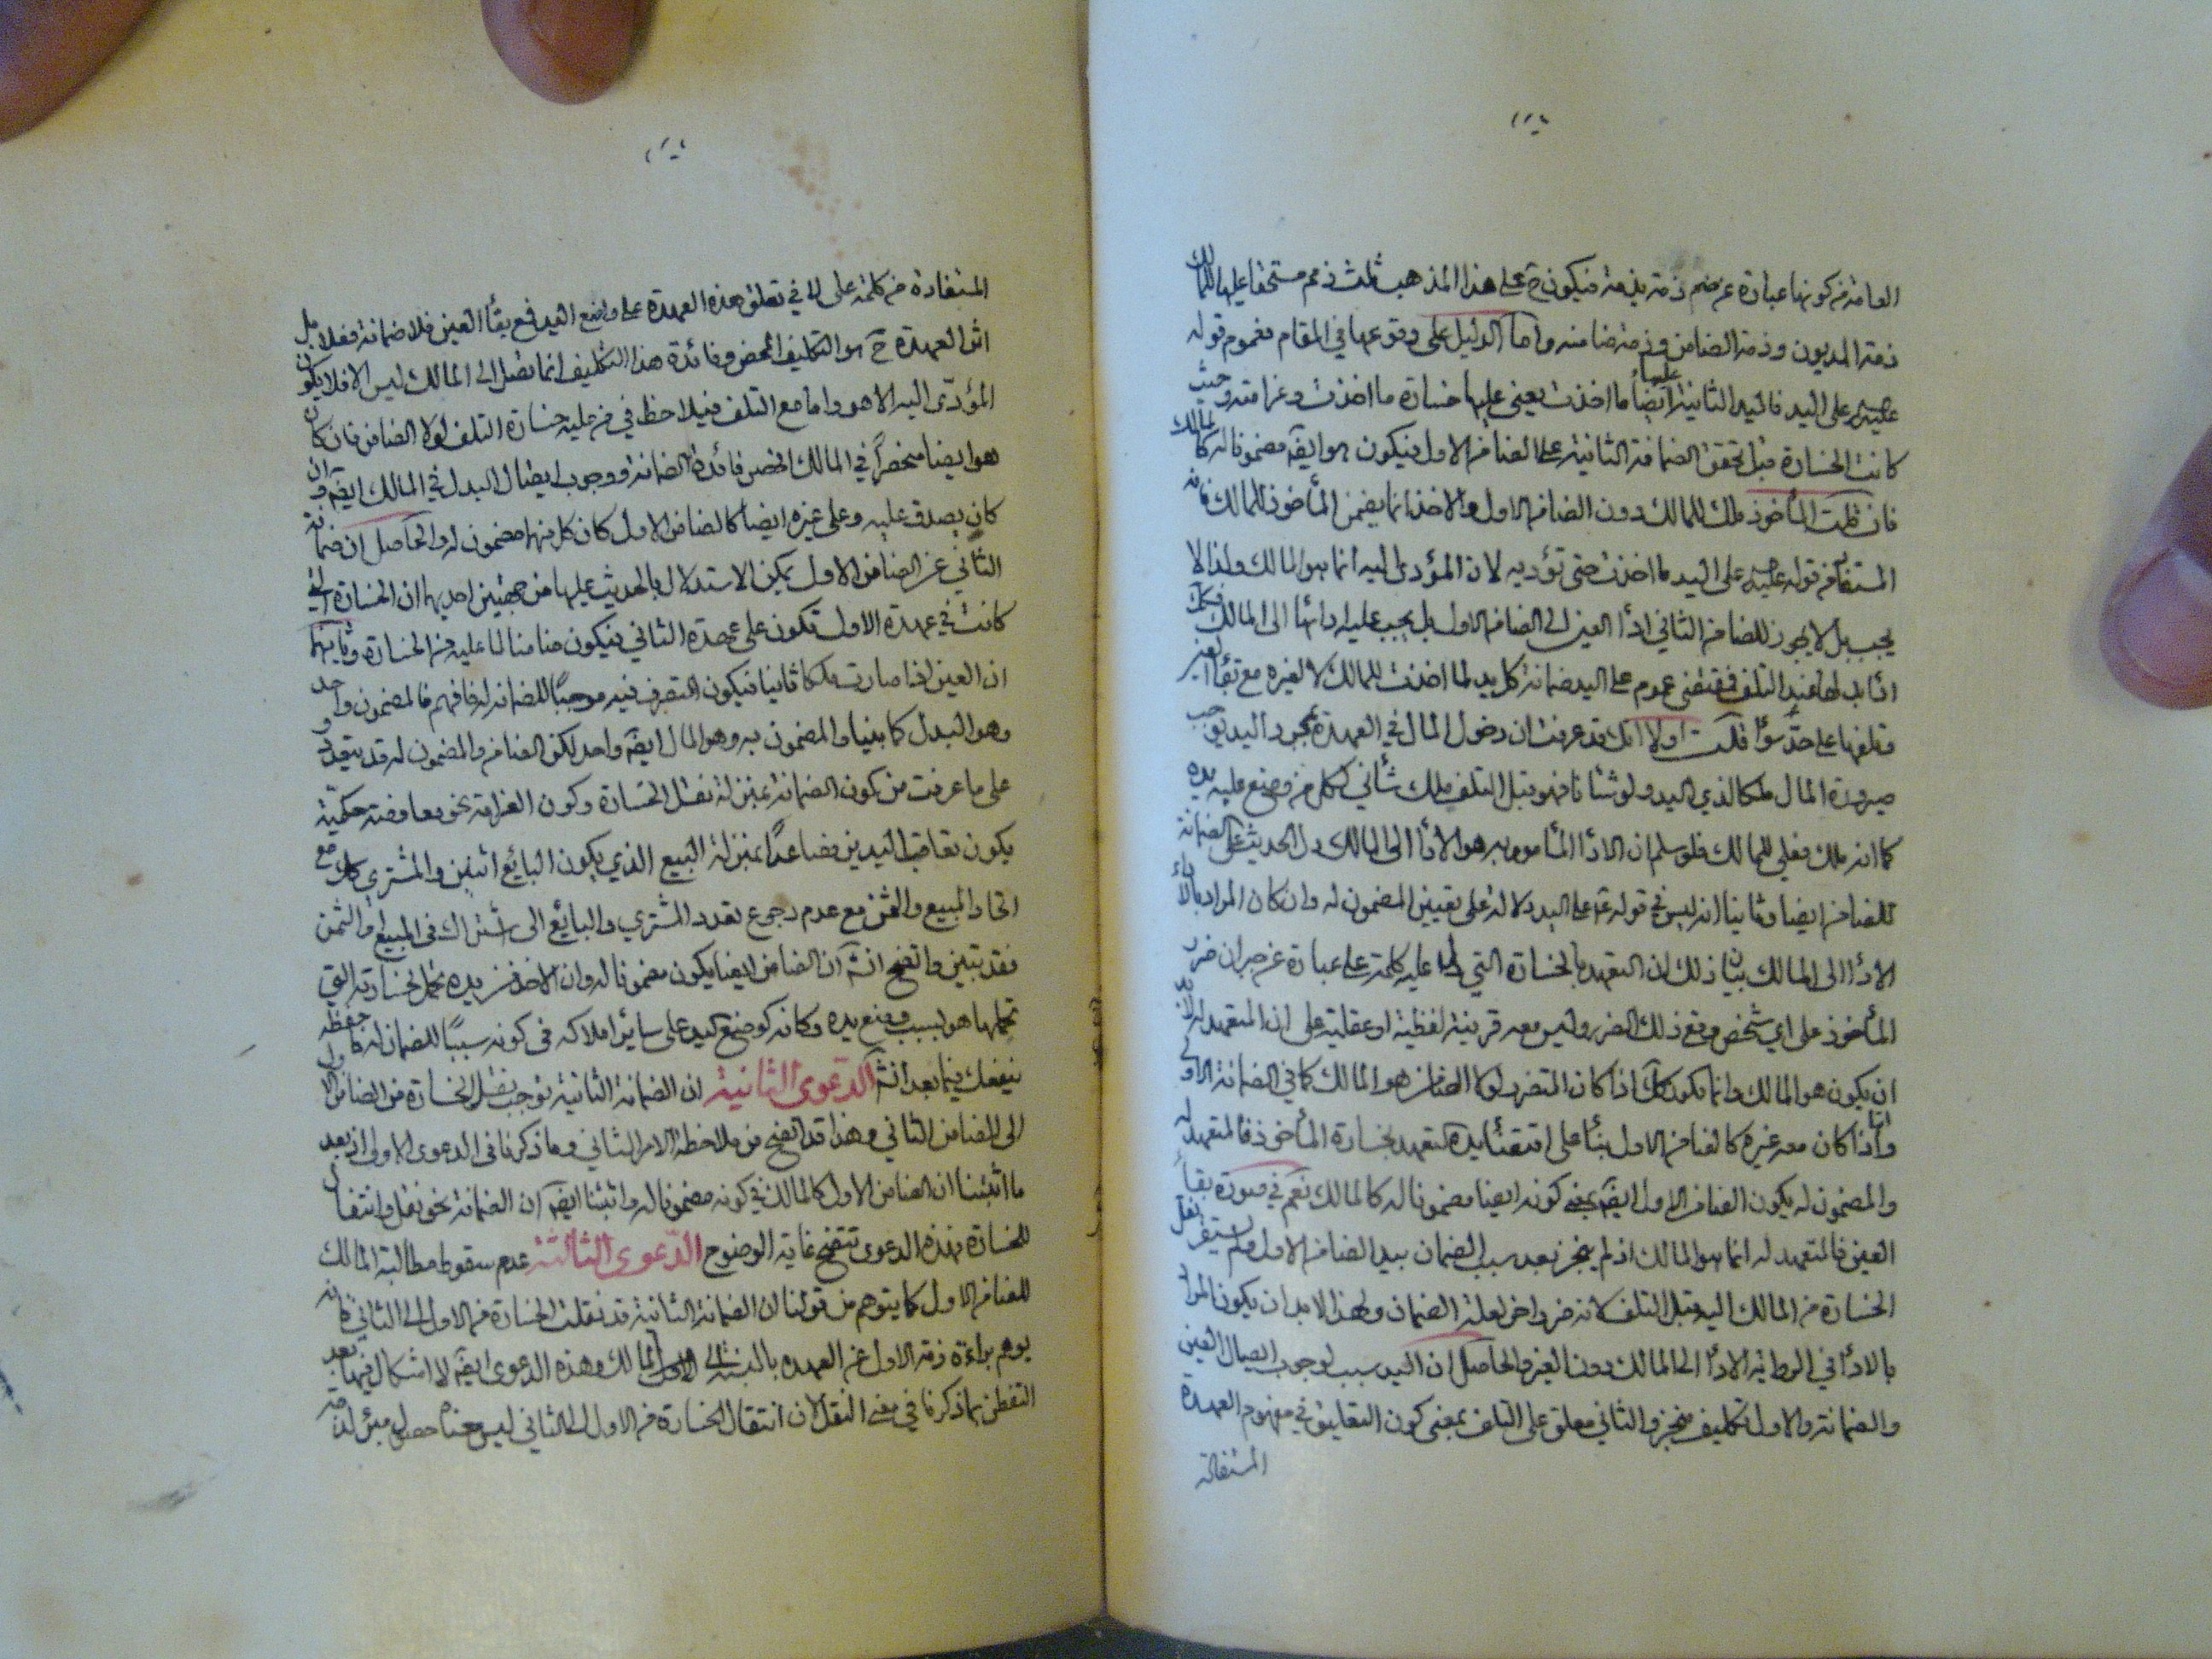 العامة من كونها عبارة عن ضم ذمة بذمة فيكون ح على هذا المذهب ثلث ذمم مستحقا عليها للمالك
ذمة المديون وذمة الضامن وذمة ضامنه واما الدليل على وقوعها في المقام فعموم قوله
على اليد فاليد الثانية ايضا عليها ما اخذت يعني عليها خسارة ما اخذت وغرامته وحيث
كانت الخسارة قبل تحقق الضمانة الثانية على الضامن الاول فيكون هو ايضه مضمونا له كالمالك
فان قلت المأخوذ ملك للمالك دون الضامن الاول والاخذ انما يضمن المأخوذ للمالك فانه
المستفاد من قوله على اليد ما اخذت حتى تؤديه لان المؤدى اليه انما هو المالك ولذا لا
يجب بل لا يجوز للضامن الثاني اداأ العين الى الضامن الاول بل يجب عليه اداؤها الى المالك فكك
ابدالها عند التلف فمقتضى عموم على اليد ضمانة كل يد لما اخذت للمالك لا لغيره مع بقاأ العين
وتلفها على حد سواأ قلت اولا انك قد عرفت ان دخول المال في العهدة بمجرد اليد يوجب
صيرورة المال ملكا لذي اليد ولو شأنا فهو قبل التلف ملك شأني لكل من وضع عليه يده
كما انه ملك فعلي للمالك فلو سلم ان الاداأ المأمور به هو الاداأ الى المالك دل الحديث على الضمانة
للضامن ايضا وثانيا انه ليس في قوله على اليد دلالة على تعيين المضمون له وان كان المراد بالاداء
الاداأ الى المالك بيان ذلك ان التعهد بالخسارة التي دل عليه كلمة على عبارة عن جبران ضرر
المأخوذ على اي شخص وقع ذلك الضرر وليس معه قرينة لفظية او عقلية على ان المتعهد له لابد
ان يكون هو المالك وانما يكون كك اذا كان المتضرر هو المالك كما في الضمانة الاولى
واما اذا كان معه غيره كالضامن الاول بنأ على اقتضأ يده لتعهد خسارة المأخوذ فالمتعهد له
والمضمون له يكون الضامن الاول ايضه بمعنى كونه ايضا مضمونا له كالمالك نعم في صورة بقاأ
العين فالمتعهد له انما هو المالك اذ لم ينجز بعد سبب الضمان بيد الضامن الاول ولم يستقر نقل
الخسارة من المالك اليه قبل التلف لانه جزء اخر لعلة الضمان ولهذا لابد ان يكون المراد
بالاداأ في الرواية الاداأ الى المالك دون الغير والحاصل ان اليد سبب لوجوب ايصال العين
والضمانة والاول تكليف منجز والثاني معلق على التلف بمعنى كون التعليق في مفهوم العهدة
المستفادة
المستفادة من كلمة على لا في تعلق هذه العهدة على واضع اليد فمع بقاأ العين فلا ضمانة فعلا بل
اثر العهدة ح هو التكليف المحض وفائدة هذا التكليف انما تصل الى المالك ليس الا فلا يكون
المؤدى اليه الا هو واما مع التلف فيلاحظ في من عليه خسارة التلف لولا الضامن فان كان
هو ايضا منحصرا في المالك انحصر فائدة الضمانة ووجوب ايصال البدل في المالك ايضه وان
كان يصدق عليه وعلى غيره ايضا كالضامن الاول كان كل منهما مضمون له والحاصل ان ضمانة
الثاني عن الضامن الاول يمكن الاستدلال بالحديث عليها من جهتين احديهما ان الخسارة التي
كانت في عهدة الاول تكون على عهدة الثاني فيكون ضامنا لما عليه من الخسارة وثانيهما
ان العين لما صارت ملكا ثانيا فيكون التصرف فيه موجبا للضمان له فافهم فالمضمون واحد
وهو البدل كما بينا والمضمون به وهو المال ايضه واحد لكن الضامن والمضمون له قد يتعدد
على ما عرفت من كون الضمانة بمنزلة نقل الخسارة وكون الغرامة نحو معاوضة حكمية
يكون تعاقب اليدين فصاعدا بمنزلة البيع الذي يكون البايع اثنين والمشتري كل مع
اتحاد المبيع والثمن مع عدم رجوع تعدد المشتري والبايع الى اشتراك في المبيع او الثمن
فقد تبين واتضح ان الضامن ايضا يكون مضمونا له وان الاخذ من يده تحمل خسارته التي
تحملها هو بسبب وضع يده وكانه كوضع اليد على ساير املاكه في كونه سببا للضمان له فاحفظه
ينفعك فيما بعد انشه الدعوى الثانية ان الضمانة الثانية توجب نقل الخسارة من الضامن الاول
الى الضامن الثاني وهذا قد اتضح من ملاحظة الامر الثاني وما ذكرنا في الدعوى الاولى اذ بعد
ما اثبتنا ان الضامن الاول كالمالك في كونه مضمونا له واثبتنا ايضه ان الضمانة نحو نقل وانتقال
للخسارة فهذه الدعوى تتضح غاية الوضوح الدعوى الثالثة عدم سقوط مطالبة المالك
للضامن الاول كما يتوهم من قولنا ان الضمانة الثانية قد نقلت الخسارة من الاول الى الثاني فانه
يوهم براءة ذمة الاول عن العهده بالنسبة الى المالك وهذه الدعوى ايضه لا اشكال فيها بعد
التفطن بما ذكرنا في معنى النقل لان انتقال الخسارة من الاول الى الثاني ليس معناه حصول